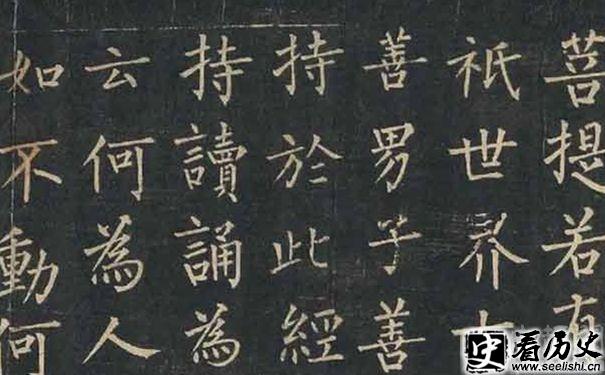 菩提若有
祇世界七
善男子善
持於此經
持讀誦為
云何為人
如不動何
史 看历史
www.seelishi.cn